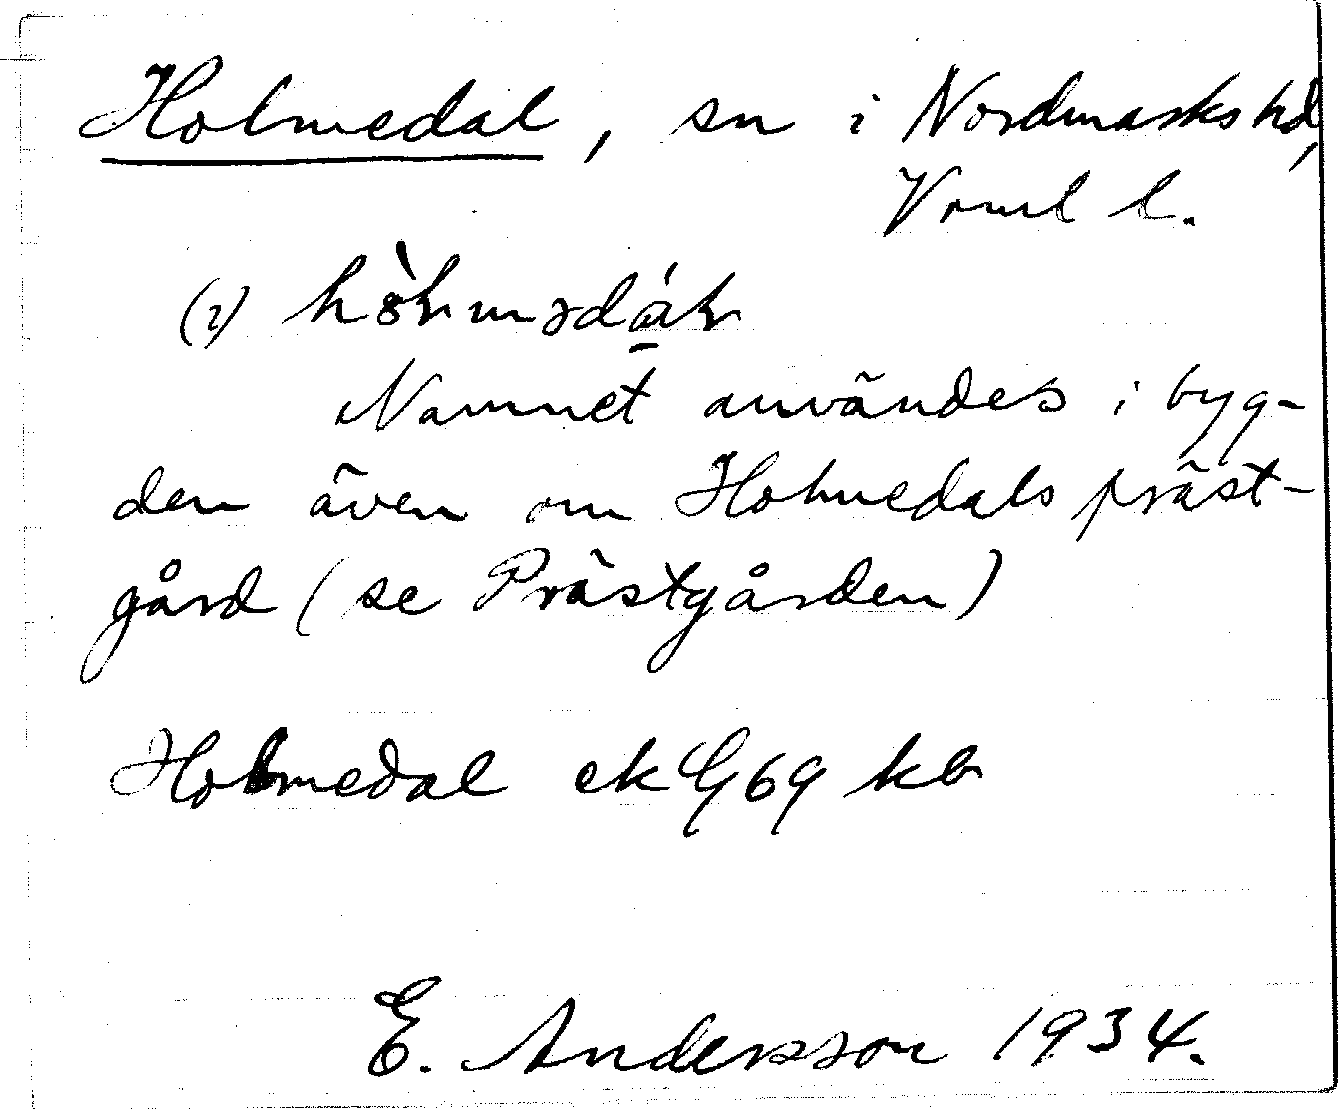 Holmedal, sn i Nordmarks hd,
Värml l.
(i)
Namnet användes i byg-
den även om Holmedals präst-
gård (se Prästgården)
Holmedal ek G69 kb
E. Andersson 1934.